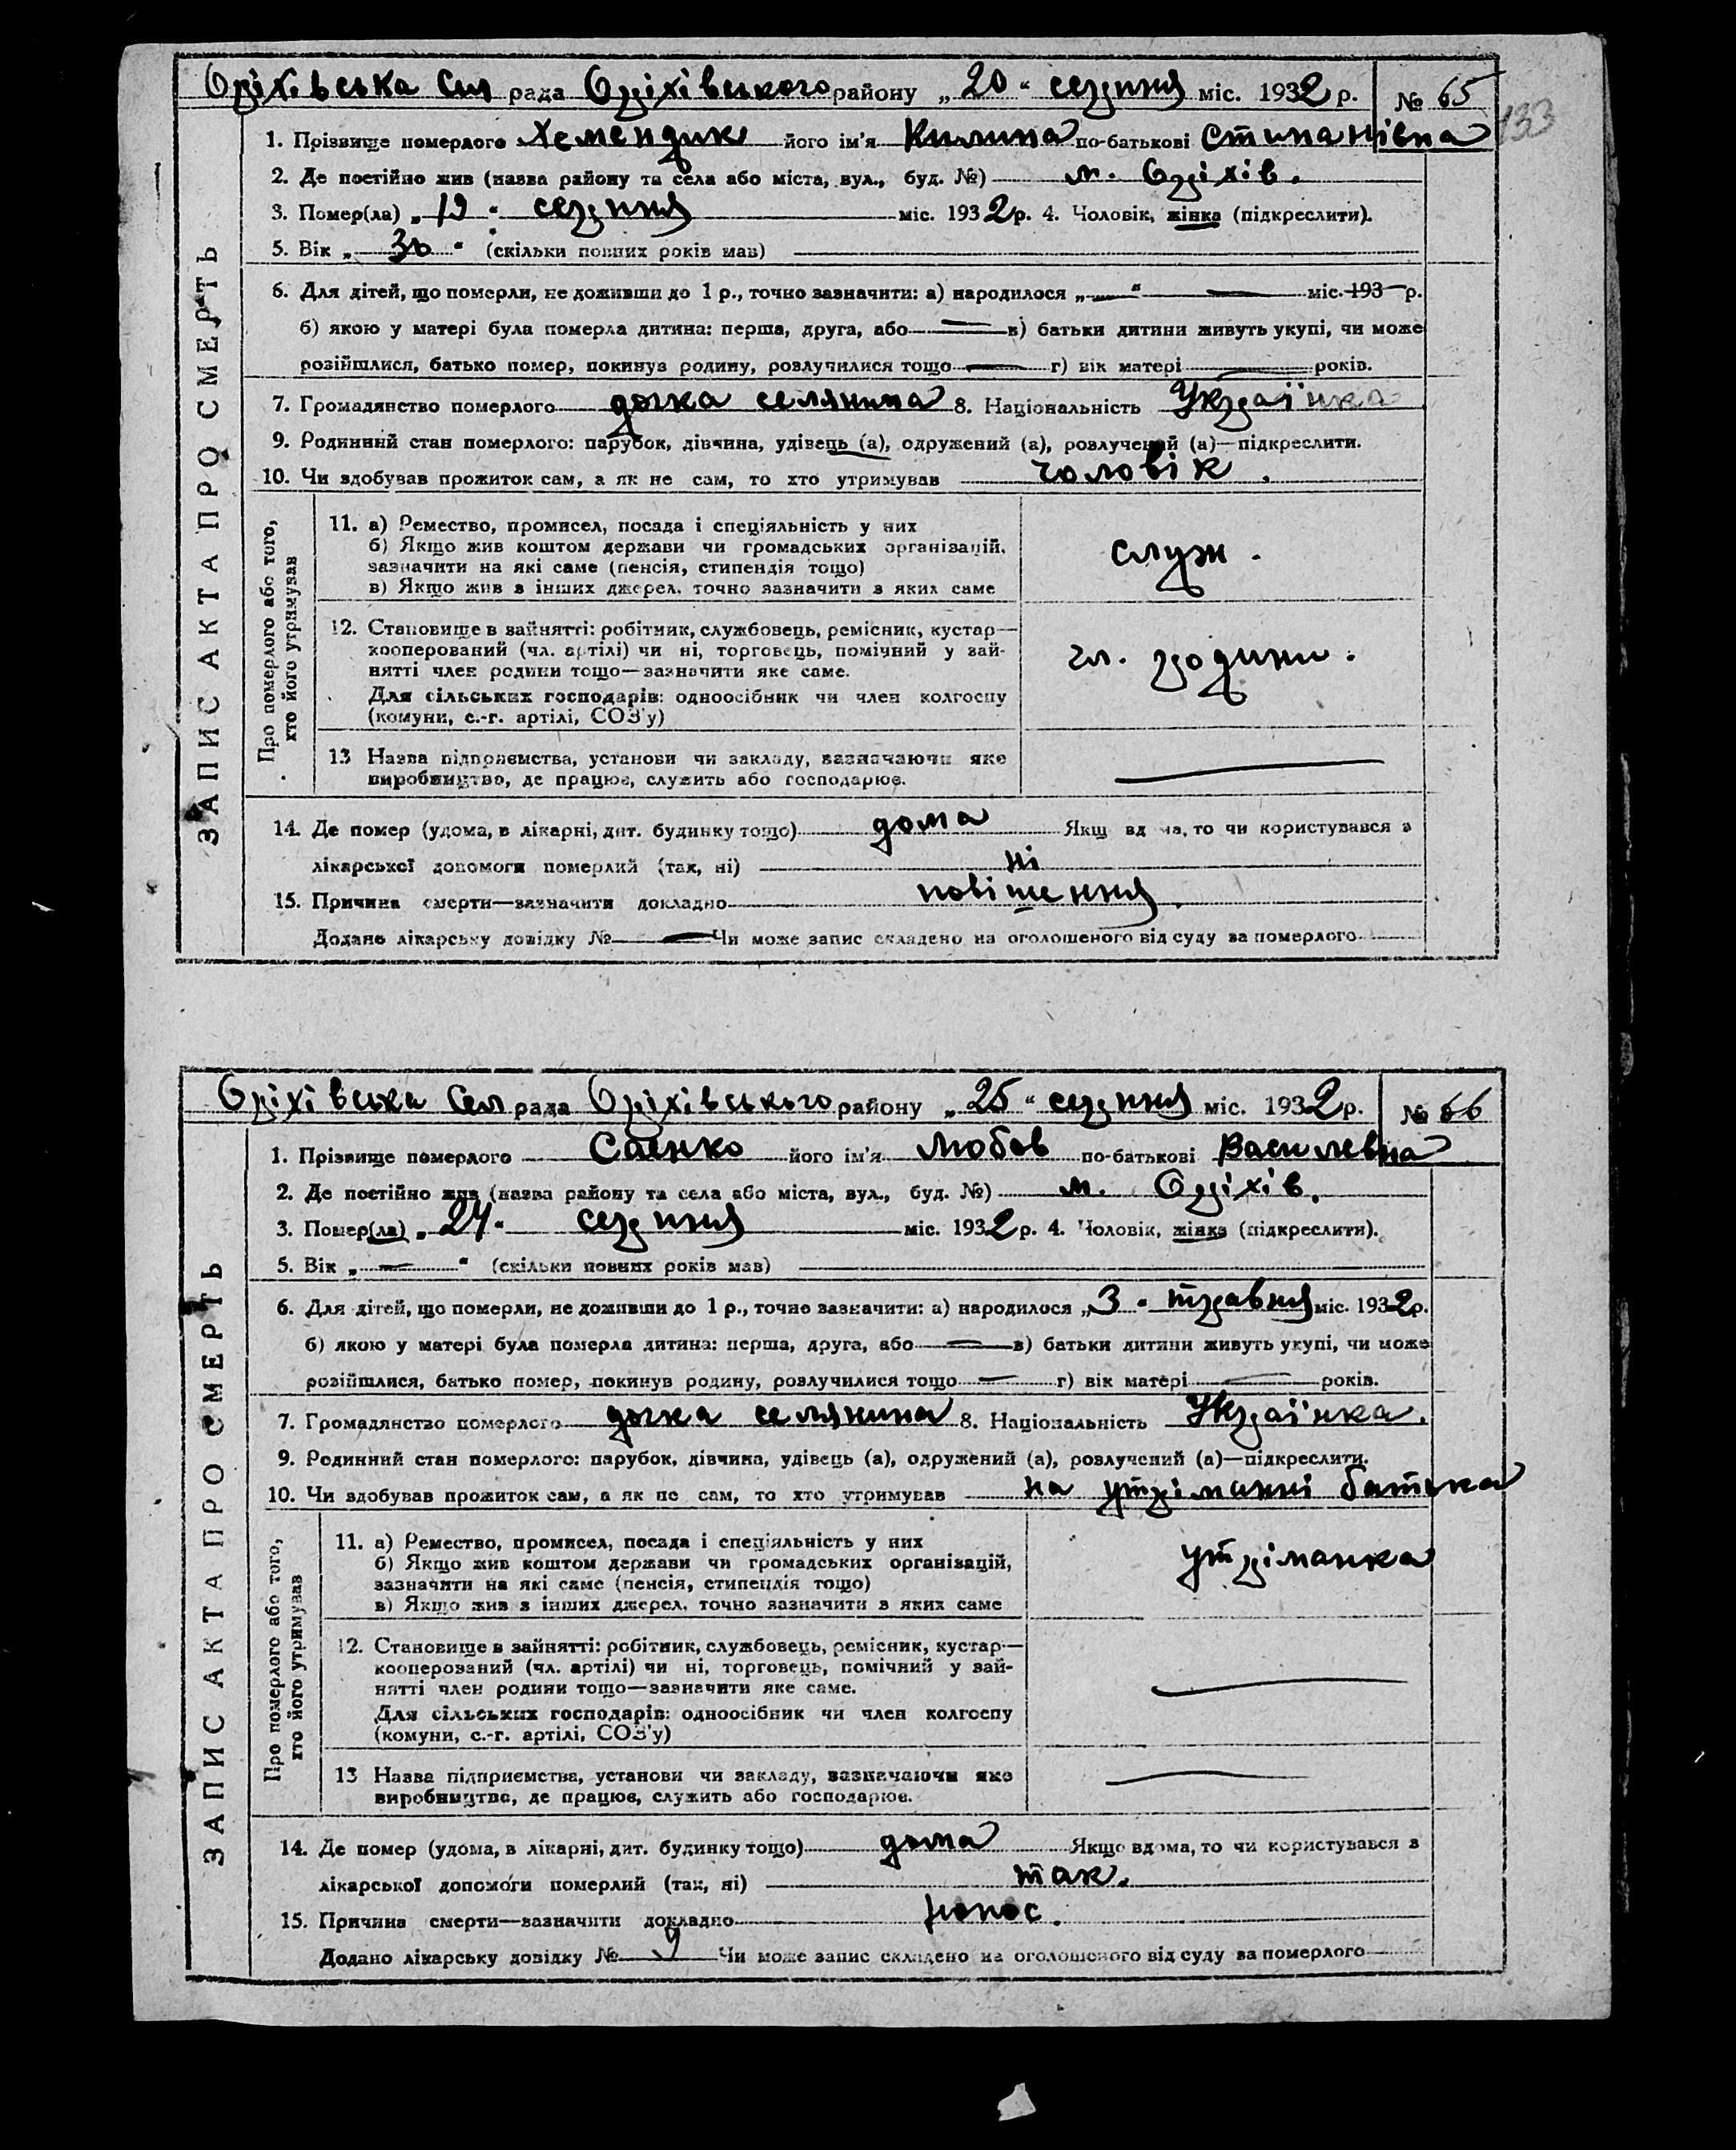 Оріхівська Сел рада Оріхівського району „20“ серпня міс. 1932 р. № 65
133
1. Прізвище померлого Хемендик його ім'я Килина по-батькові Степанівна
2. Де постійно жив (назва району та села або міста, вул., буд. №) м. Оріхів.
3. Помер(ла) „19“ серпня міс. 1932 р. 4. Чоловік, жінка (підкреслити).
5. Вік „ “ (скільки повних років мав)
6. Для дітей, що померли, не доживши до 1 р., точно зазначити: а) народилося „—“ — міс. 193— р.
б) якою у матері була померла дитина: перша, друга, або — в) батьки дитини живуть укупі, чи може
розійшлися, батько помер, покинув родину, розлучилися тощо — г) вік матері — років.
7. Громадянство померлого дочка селянина 8. Національність Українка
9. Родинний стан померлого: парубок, дівчина, удівець (а), одружений (а), розлучений (а)—підкреслити.
10. Чи здобував прожиток сам, а як не сам, то хто утримував чоловік.
ЗАПИС АКТА ПРО СМЕРТЬ
Про померлого або того,
хто його утримував
11. а) Ремество, промисел, посада і спеціяльність у них
б) Якщо жив коштом держави чи громадських організацій,
зазначити на які саме (пенсія, стипендія тощо)
в) Якщо жив з інших джерел, точно зазначити з яких саме
служ.
12. Становище в зайнятті: робітник, службовець, ремісник, кустар—
кооперований (чл. артілі) чи ні, торговець, помічний у зай-
нятті член родини тощо—зазначити яке саме.
Для сільських господарів: одноосібник чи член колгоспу
(комуни, с.-г. артілі, СОЗ'у)
чл. родини.
13 Назва підприємства, установи чи закладу, зазначаючи яке
виробництво, де працює, служить або господарює.
—
14. Де помер (удома, в лікарні, дит. будинку тощо) дома Якщ вд ма, то чи користувався з
лікарської допомоги померлий (так, ні) ні
15. Причина смерти—зазначити докладно повішення.
Додано лікарську довідку № — Чи може запис складено на оголошеного від суду за померлого
Оріхівська Сел рада Оріхівського району „25“ серпня міс. 1932 р. № 66
1. Прізвище померлого Саенко його ім'я Любов по-батькові Василевна
2. Де постійно жив (назва району та села або міста, вул., буд. №) м. Оріхів.
3. Помер(ла) „24“ серпня міс. 1932 р. 4. Чоловік, жінка (підкреслити).
5. Вік „—“ (скільки повних років мав)
6. Для дітей, що померли, не доживши до 1 р., точно зазначити: а) народилося „3“ травня міс. 1932 р.
б) якою у матері була померла дитина: перша, друга, або — в) батьки дитини живуть укупі, чи може
розійшлися, батько помер, покинув родину, розлучилися тощо — г) вік матері — років.
7. Громадянство померлого дочка селянина 8. Національність Українка.
9. Родинний стан померлого: парубок, дівчина, удівець (а), одружений (а), розлучений (а)—підкреслити.
10. Чи здобував прожиток сам, а як не сам, то хто утримував на утріманні батька
ЗАПИС АКТА ПРО СМЕРТЬ
Про померлого або того,
хто його утримував
11. а) Ремество, промисел, посада і спеціяльність у них
б) Якщо жив коштом держави чи громадських організацій,
зазначити на які саме (пенсія, стипендія тощо)
в) Якщо жив з інших джерел, точно зазначити з яких саме
утріманка
12. Становище в зайнятті: робітник, службовець, ремісник, кустар—
кооперований (чл. артілі) чи ні, торговець, помічний у зай-
нятті член родини тощо—зазначити яке саме.
Для сільських господарів: одноосібник чи член колгоспу
(комуни, с.-г. артілі, СОЗ'у)
—
13 Назва підприємства, установи чи закладу, зазначаючи яке
виробництво, де працює, служить або господарює.
—
14. Де помер (удома, в лікарні, дит. будинку тощо) дома Якщо вдома, то чи користувався з
лікарської допомоги померлий (так, ні) так.
15. Причина смерти—зазначити докладно понос.
Додано лікарську довідку № 9 Чи може запис складено на оголошеного від суду за померлого